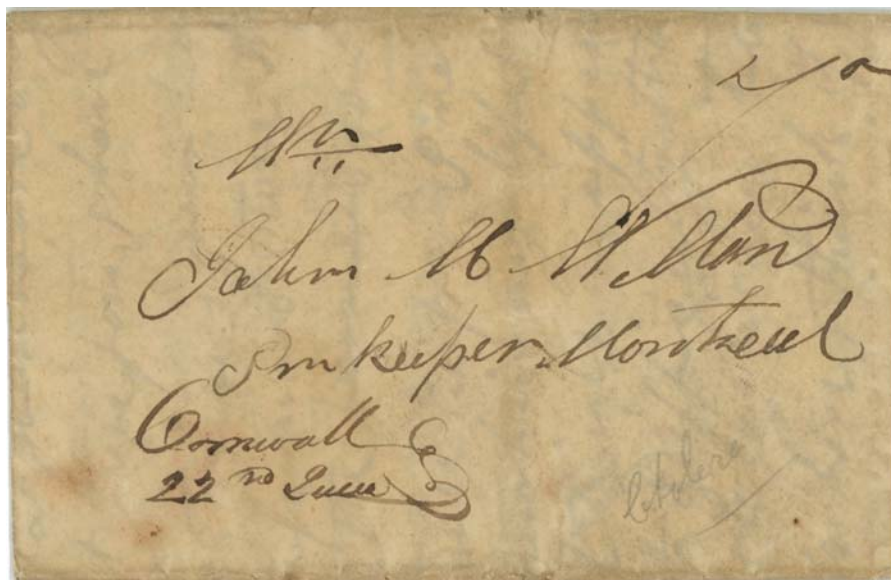 Mr
John Mc Millan
Inn keeper Montreal
Cornwall
22nd June
Cholera